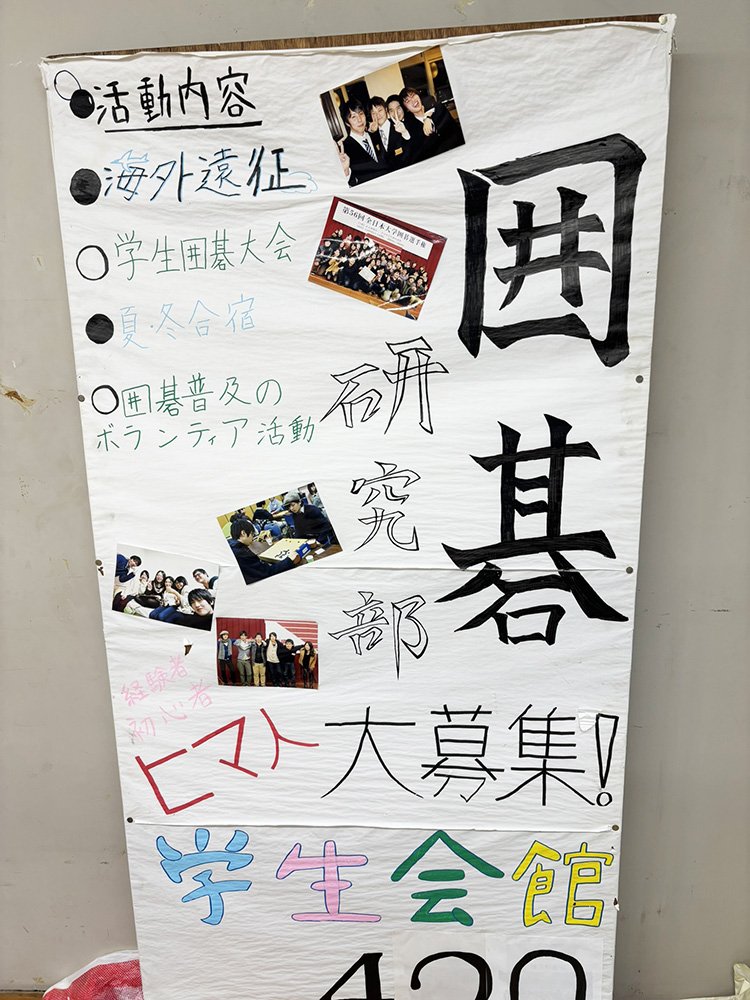 囲碁
研究部
活動内容
海外遠征
学生囲碁大会
夏・冬合宿
囲碁普及の
ボランティア活動
第56回全日本大学囲碁選手権
経験者
初心者
ヒマト
大募集!
学生会館
420